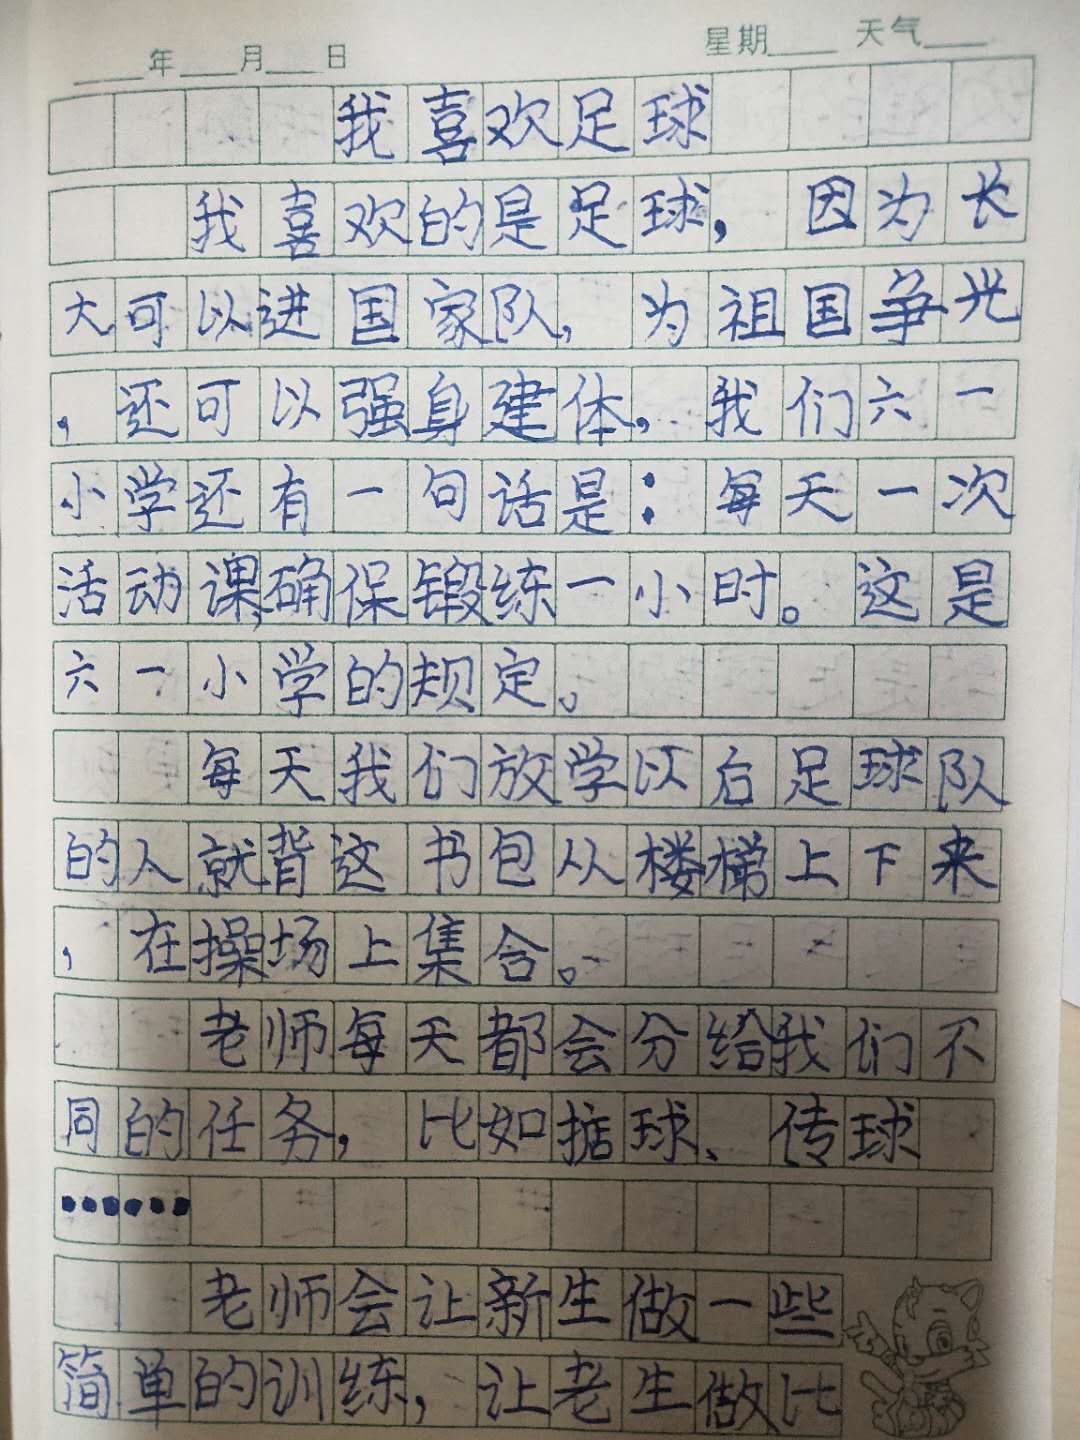 年 月 日 星期 天气
我喜欢足球
我喜欢的是足球，因为长
大可以进国家队，为祖国争光
，还可以强身建体，我们六一
小学还有一句话是：每天一次
活动课，确保锻练一小时。这是
六一小学的规定。
每天我们放学以后足球队
的人就背这书包从楼梯上下来
，在操场上集合。
老师每天都会分给我们不
同的任务，比如掂球、传球
……
老师会让新生做一些
简单的训练，让老生做比